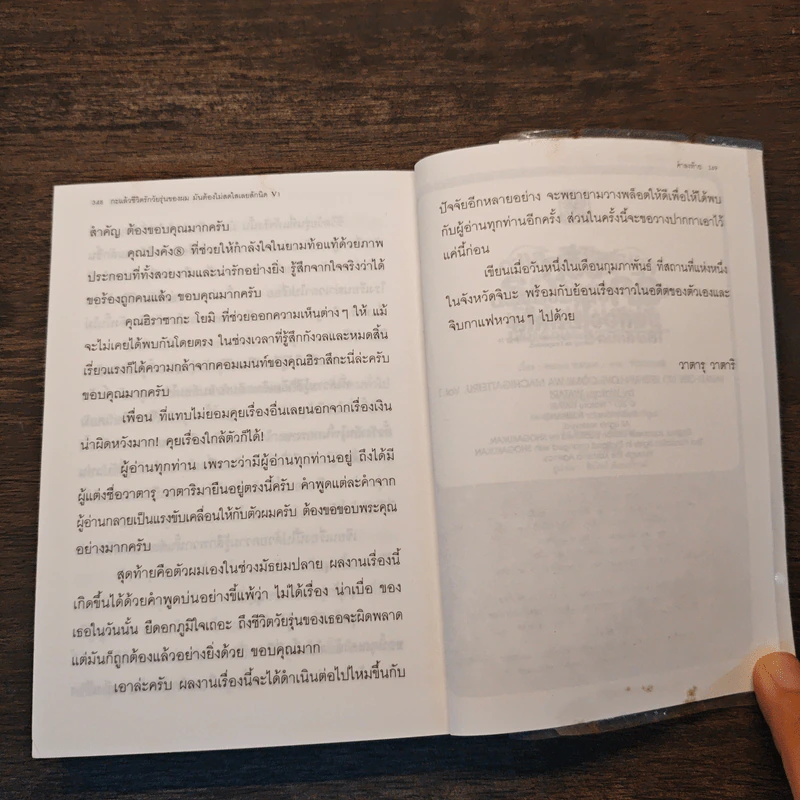 348 กะแล้วชีวิตรักวัยรุ่นของผม มันต้องไม่สดใสเลยสักนิด V1
สำคัญ ต้องขอบคุณมากครับ
คุณปงคัง⑧ ที่ช่วยให้กำลังใจในยามท้อแท้ด้วยภาพ
ประกอบที่ทั้งสวยงามและน่ารักอย่างยิ่ง รู้สึกจากใจจริงว่าได้
ขอร้องถูกคนแล้ว ขอบคุณมากครับ
คุณฮิราซากะ โยมิ ที่ช่วยออกความเห็นต่างๆ ให้ แม้
จะไม่เคยได้พบกันโดยตรง ในช่วงเวลาที่รู้สึกกังวลและหมดสิ้น
เรี่ยวแรงก็ได้ความกล้าจากคอมเมนท์ของคุณฮิราสึกะนี่ล่ะครับ
ขอบคุณมากครับ
เพื่อน ที่แทบไม่ยอมคุยเรื่องอื่นเลยนอกจากเรื่องเงิน
น่าผิดหวังมาก! คุยเรื่องใกล้ตัวก็ได้!
ผู้อ่านทุกท่าน เพราะว่ามีผู้อ่านทุกท่านอยู่ ถึงได้มี
ผู้แต่งชื่อวาตารุ วาตาริมายืนอยู่ตรงนี้ครับ คำพูดแต่ละคำจาก
ผู้อ่านกลายเป็นแรงขับเคลื่อนให้กับตัวผมครับ ต้องขอขอบพระคุณ
อย่างมากครับ
สุดท้ายคือตัวผมเองในช่วงมัธยมปลาย ผลงานเรื่องนี้
เกิดขึ้นได้ด้วยคำพูดบ่นอย่างขี้แพ้ว่า ไม่ได้เรื่อง น่าเบื่อ ของ
เธอในวันนั้น ยืดอกภูมิใจเถอะ ถึงชีวิตวัยรุ่นของเธอจะผิดพลาด
แต่มันก็ถูกต้องแล้วอย่างยิ่งด้วย ขอบคุณมาก
เอาล่ะครับ ผลงานเรื่องนี้จะได้ดำเนินต่อไปไหมขึ้นกับ
คำลงท้าย 349
ปัจจัยอีกหลายอย่าง จะพยายามวางพล็อตให้ดีเพื่อให้ได้พบ
กับผู้อ่านทุกท่านอีกครั้ง ส่วนในครั้งนี้จะขอวางปากกาเอาไว้
แค่นี้ก่อน
เขียนเมื่อวันหนึ่งในเดือนกุมภาพันธ์ ที่สถานที่แห่งหนึ่ง
ในจังหวัดจิบะ พร้อมกับย้อนเรื่องราวในอดีตของตัวเองและ
จิบกาแฟหวานๆ ไปด้วย
วาตารุ วาตาริ